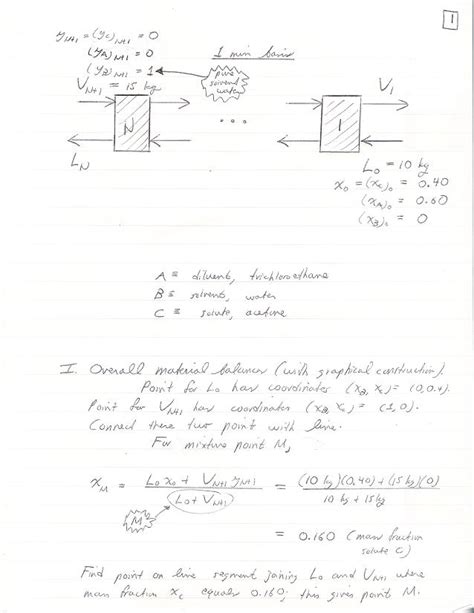 1
y_{N+1} = (y_C)_{N+1} = 0
(y_A)_{N+1} = 0
(y_B)_{N+1} = 1
1 min basis
pure solvent water
V_{N+1} = 15 kg
V_1
N
...
1
L_N
L_0 = 10 kg
x_0 = (x_C)_0 = 0.40
(x_A)_0 = 0.60
(x_B)_0 = 0
A ≡ diluent, trichloroethane
B ≡ solvent, water
C ≡ solute, acetone
I. Overall material balance (with graphical construction).
Point for L_0 has coordinates (x_B, x_C) = (0, 0.4).
Point for V_{N+1} has coordinates (x_B, x_C) = (1, 0).
Connect these two point with line.
For mixture point M,
x_M = (L_0 x_0 + V_{N+1} y_{N+1}) / (L_0 + V_{N+1}) = ((10 kg)(0.40) + (15 kg)(0)) / (10 kg + 15 kg)
M
= 0.160 (mass fraction
solute C)
Find point on line segment joining L_0 and V_{N+1} where
mass fraction x_C equals 0.160; this gives point M.